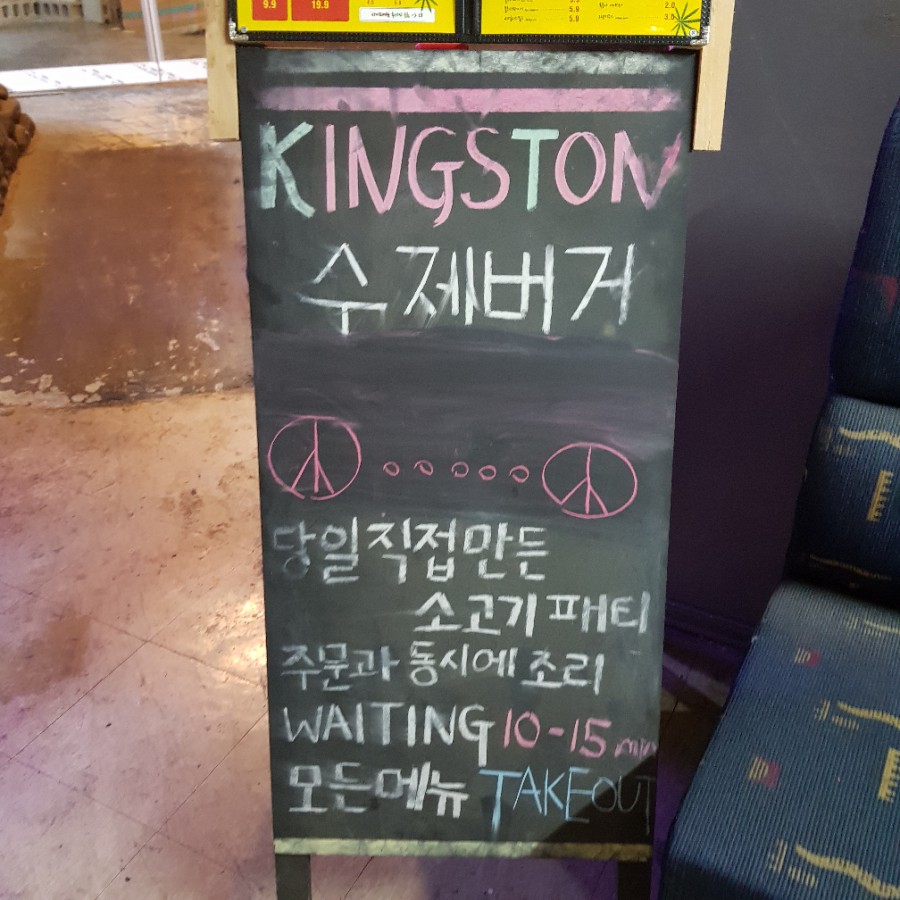 9.9 19.9
5.9
5.9
2.0
3.0
KINGSTON
수제버거
당일 직접 만든
소고기 패티
주문과 동시에 조리
WAITING 10-15 min
모든메뉴 TAKEOUT